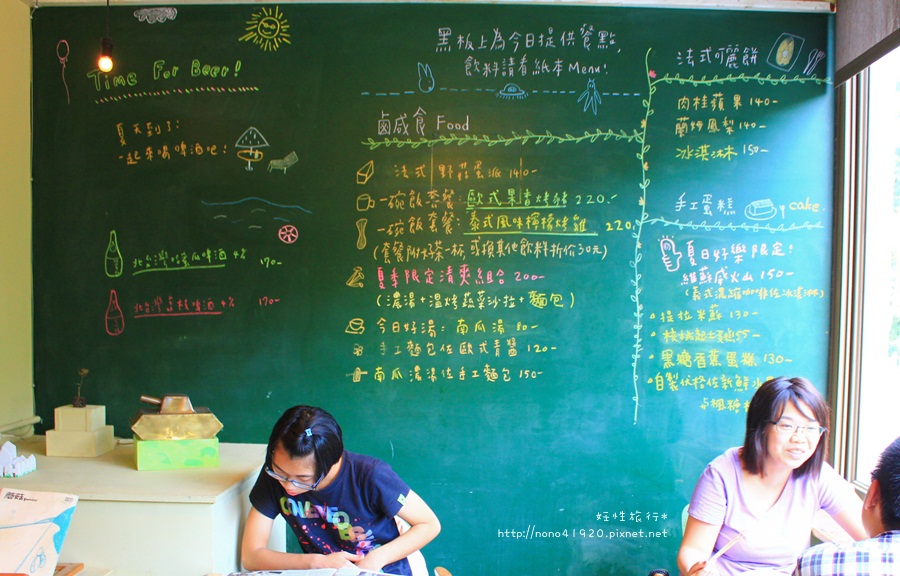 黑板上為今日提供餐點,
飲料請看紙本Menu!
Time For Beer!
夏天到了:
一起來喝啤酒吧!
北台灣哈蜜瓜啤酒 4%
170-
北台灣荔枝啤酒 4%
170-
鹵咸食 Food
法式野菇蛋派 140-
一碗飯套餐: 歐式果香烤豬 220.-
一碗飯套餐: 泰式風味檸檬烤雞 220.
(套餐附好茶一杯, 或換其他飲料折價30元)
夏季限定清爽組合 200-
(濃湯+溫烤蔬菜沙拉+麵包)
今日好湯: 南瓜湯 80-
手工麵包佐歐式青醬 120-
南瓜濃湯佐手工麵包 150-
法式可麗餅
肉桂蘋果 140-
蘭姆鳳梨 140-
冰淇淋 150-
手工蛋糕 cake.
夏日好樂限定!
維蘇威火山 150-
提拉米蘇 130-
黑糖香蕉蛋糕 130-
自製優格佐新鮮水
楓糖
CONVERSE
蘑菇
妊性旅行*
http://nono41920.pixnet.net